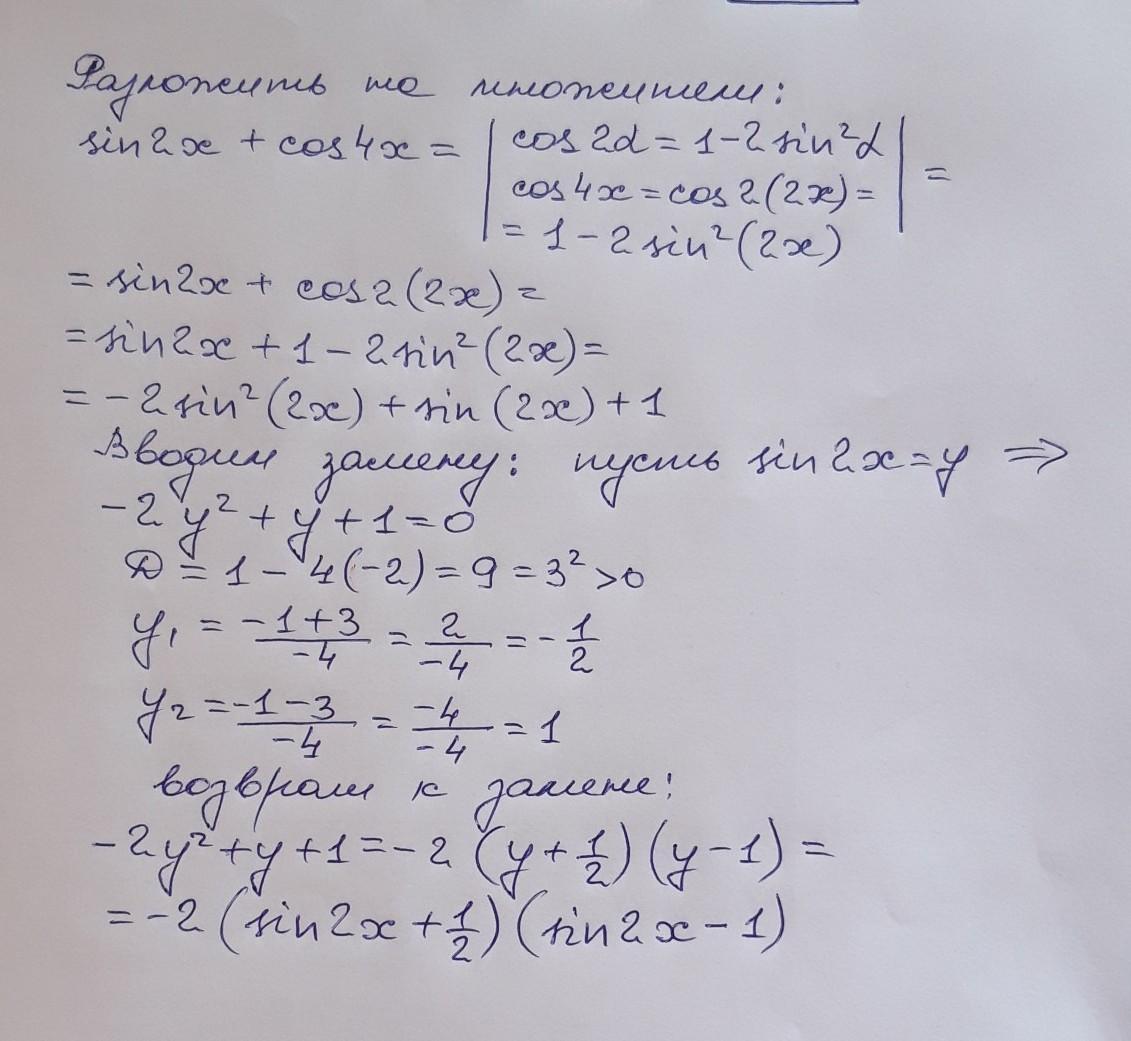 Разложить на множители:
sin2x + cos4x = | cos2α = 1-2sin²α | =
cos4x = cos2(2x) =
= 1 - 2sin²(2x)
= sin2x + cos2(2x) =
= sin2x + 1 - 2sin²(2x) =
= -2sin²(2x) + sin(2x) + 1
Вводим замену: пусть sin2x = y ⇒
-2y² + y + 1 = 0
D = 1 - 4(-2) = 9 = 3² > 0
y₁ = (-1+3)/(-4) = 2/(-4) = -1/2
y₂ = (-1-3)/(-4) = (-4)/(-4) = 1
возврат к замене:
-2y² + y + 1 = -2(y + 1/2)(y - 1) =
= -2(sin2x + 1/2)(sin2x - 1)